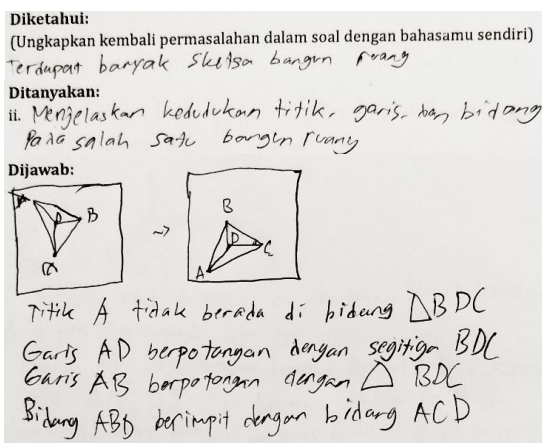 Diketahui:
(Ungkapkan kembali permasalahan dalam soal dengan bahasamu sendiri)
Terdapat banyak Sketsa bangun ruang
Ditanyakan:
ii. Menjelaskan kedudukan titik, garis, dan bidang
Pada salah satu bangun ruang
Dijawab:
B
D
B
D
C
A
Titik A tidak berada di bidang △BDC
Garis AD berpotongan dengan segitiga BDC
Garis AB berpotongan dengan △ BDC
Bidang ABD berimpit dengan bidang ACD